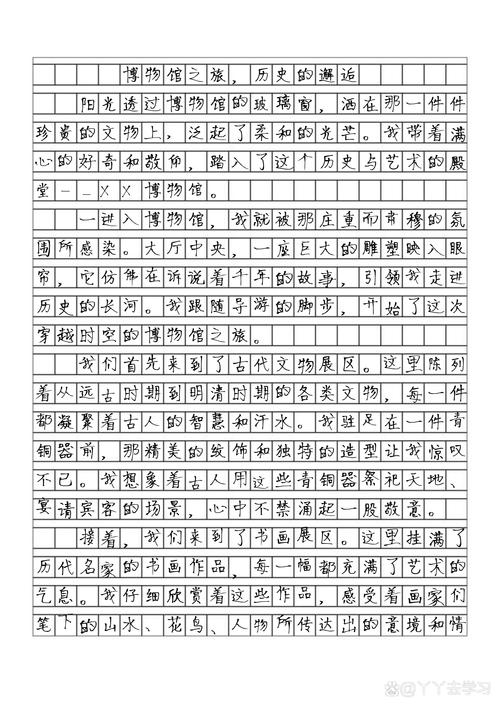 博物馆之旅，历史的邂逅
阳光透过博物馆的玻璃窗，洒在那一件件
珍贵的文物上，泛起了柔和的光芒。我带着满
心的好奇和敬仰，踏入了这个历史与艺术的殿
堂——XX博物馆。
一进入博物馆，我就被那庄重而肃穆的氛
围所感染。大厅中央，一座巨大的雕塑映入眼
帘，它仿佛在诉说着千年的故事，引领我走进
历史的长河。我跟随导游的脚步，开始了这次
穿越时空的博物馆之旅。
我们首先来到了古代文物展区。这里陈列
着从远古时期到明清时期的各类文物，每一件
都凝聚着古人的智慧和汗水。我驻足在一件青
铜器前，那精美的纹饰和独特的造型让我惊叹
不已。我想象着古人用这些青铜器祭祀天地、
宴请宾客的场景，心中不禁涌起一股敬意。
接着，我们来到了书画展区。这里挂满了
历代名家的书画作品，每一幅都充满了艺术的
气息。我仔细欣赏着这些作品，感受着画家们
笔下的山水、花鸟、人物所传达出的意境和情
@丫丫去学习